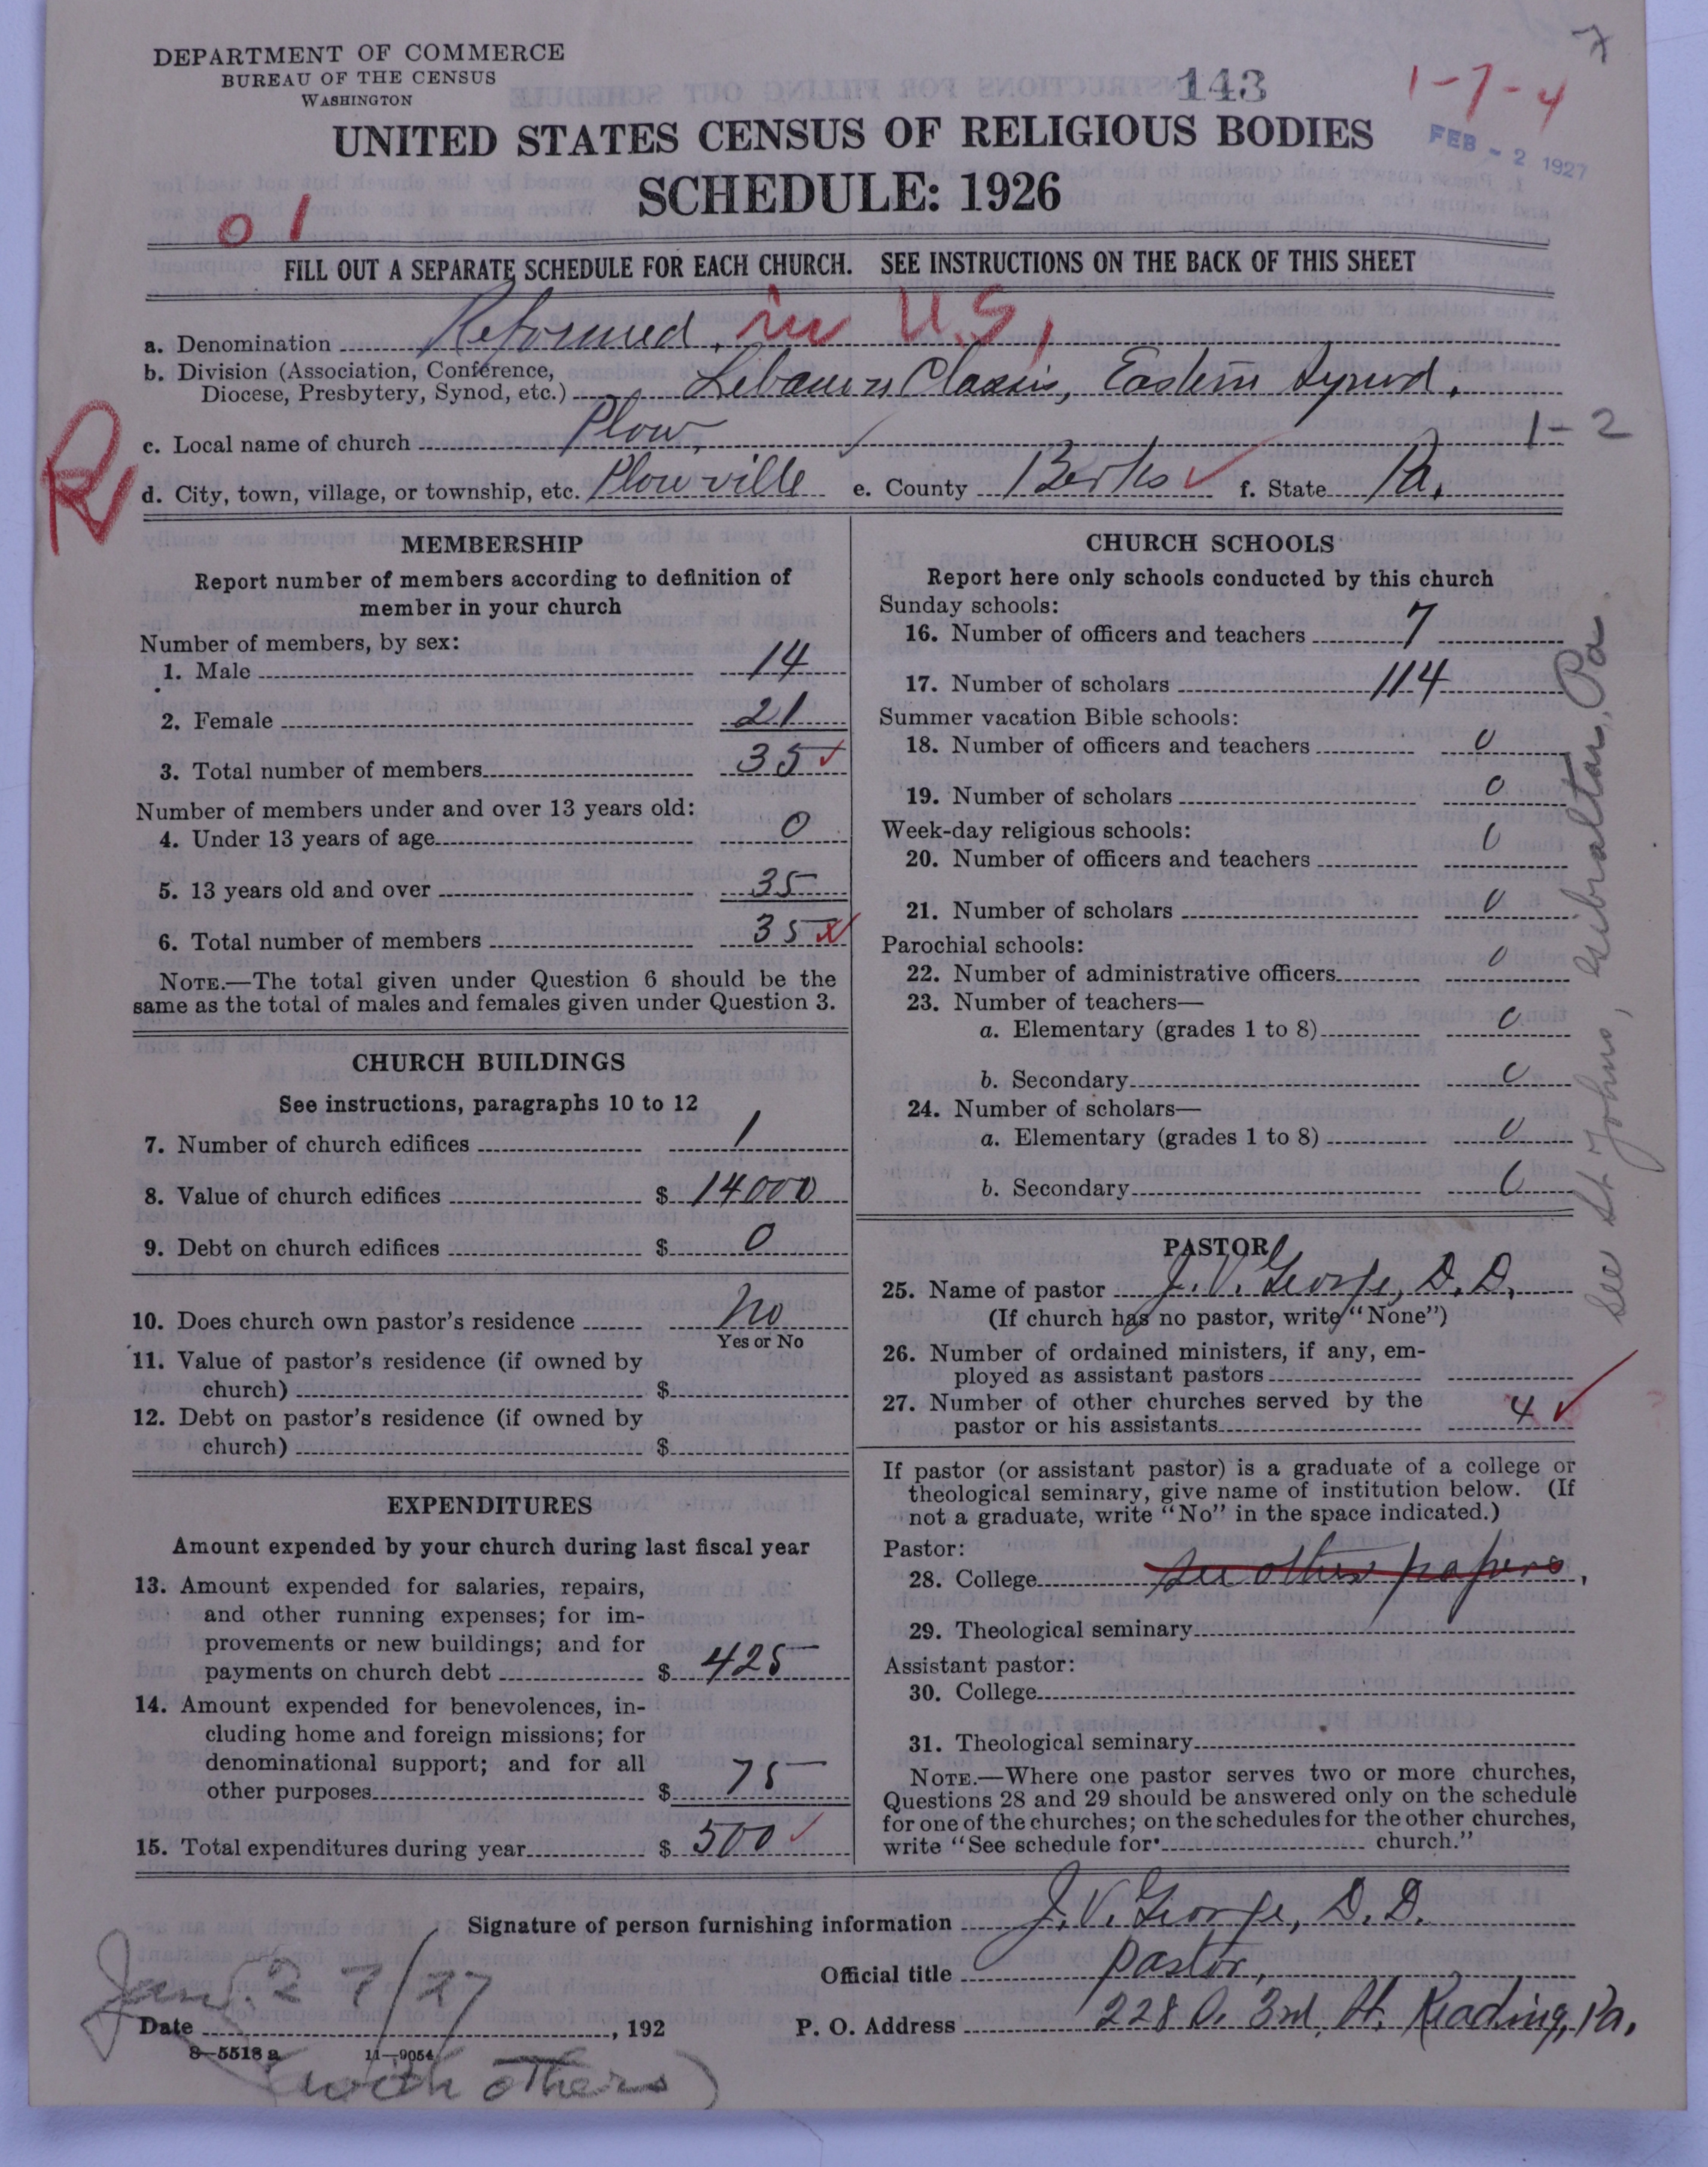 DEPARTMENT OF COMMERCE
BUREAU OF THE CENSUS
WASHINGTON
143
1-7-4
7
FEB - 2 1927
UNITED STATES CENSUS OF RELIGIOUS BODIES
SCHEDULE: 1926
01
FILL OUT A SEPARATE SCHEDULE FOR EACH CHURCH. SEE INSTRUCTIONS ON THE BACK OF THIS SHEET
a. Denomination Reformed in U.S.,
b. Division (Association, Conference,
Diocese, Presbytery, Synod, etc.) Lebanon Classis, Eastern Synod.
c. Local name of church Plow, 1-2
R
d. City, town, village, or township, etc. Plowville e. County Berks f. State Pa.
MEMBERSHIP
Report number of members according to definition of
member in your church
Number of members, by sex:
1. Male 14
2. Female 21
3. Total number of members 35
Number of members under and over 13 years old:
4. Under 13 years of age 0
5. 13 years old and over 35
6. Total number of members 35
NOTE.—The total given under Question 6 should be the
same as the total of males and females given under Question 3.
CHURCH BUILDINGS
See instructions, paragraphs 10 to 12
7. Number of church edifices 1
8. Value of church edifices $ 14000
9. Debt on church edifices $ 0
10. Does church own pastor's residence No
Yes or No
11. Value of pastor's residence (if owned by
church) $
12. Debt on pastor's residence (if owned by
church) $
EXPENDITURES
Amount expended by your church during last fiscal year
13. Amount expended for salaries, repairs,
and other running expenses; for im-
provements or new buildings; and for
payments on church debt $ 425
14. Amount expended for benevolences, in-
cluding home and foreign missions; for
denominational support; and for all
other purposes $ 75
15. Total expenditures during year $ 500
CHURCH SCHOOLS
Report here only schools conducted by this church
Sunday schools:
16. Number of officers and teachers 7
17. Number of scholars 114
Summer vacation Bible schools:
18. Number of officers and teachers 0
19. Number of scholars 0
Week-day religious schools:
20. Number of officers and teachers 0
21. Number of scholars 0
Parochial schools:
22. Number of administrative officers 0
23. Number of teachers—
a. Elementary (grades 1 to 8) 0
b. Secondary 0
24. Number of scholars—
a. Elementary (grades 1 to 8) 0
b. Secondary 0
PASTOR
25. Name of pastor J. V. George, D. D.
(If church has no pastor, write "None")
26. Number of ordained ministers, if any, em-
ployed as assistant pastors
27. Number of other churches served by the
pastor or his assistants 4
If pastor (or assistant pastor) is a graduate of a college or
theological seminary, give name of institution below. (If
not a graduate, write "No" in the space indicated.)
Pastor:
28. College see other papers,
29. Theological seminary
Assistant pastor:
30. College
31. Theological seminary
NOTE.—Where one pastor serves two or more churches,
Questions 28 and 29 should be answered only on the schedule
for one of the churches; on the schedules for the other churches,
write "See schedule for church."
See St Johns, Gibraltar, Pa.
Signature of person furnishing information J. V. George, D. D.
Official title pastor,
Jan. 27/27
Date , 192
P. O. Address 228 S. 3rd, St. Reading, Pa.
8-5518 a 11-9054
(with others)